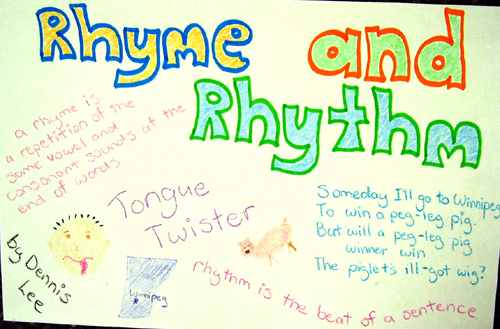 Rhyme and
Rhythm
a rhyme is
a repetition of the
same vowel and
consonant sounds at the
end of words
Tongue
Twister
by Dennis
Lee
Winnipeg
Someday I'll go to Winnipeg
To win a peg-leg pig.
But will a peg-leg pig
winner win
The piglet's ill-got wig?
rhythm is the beat of a sentence